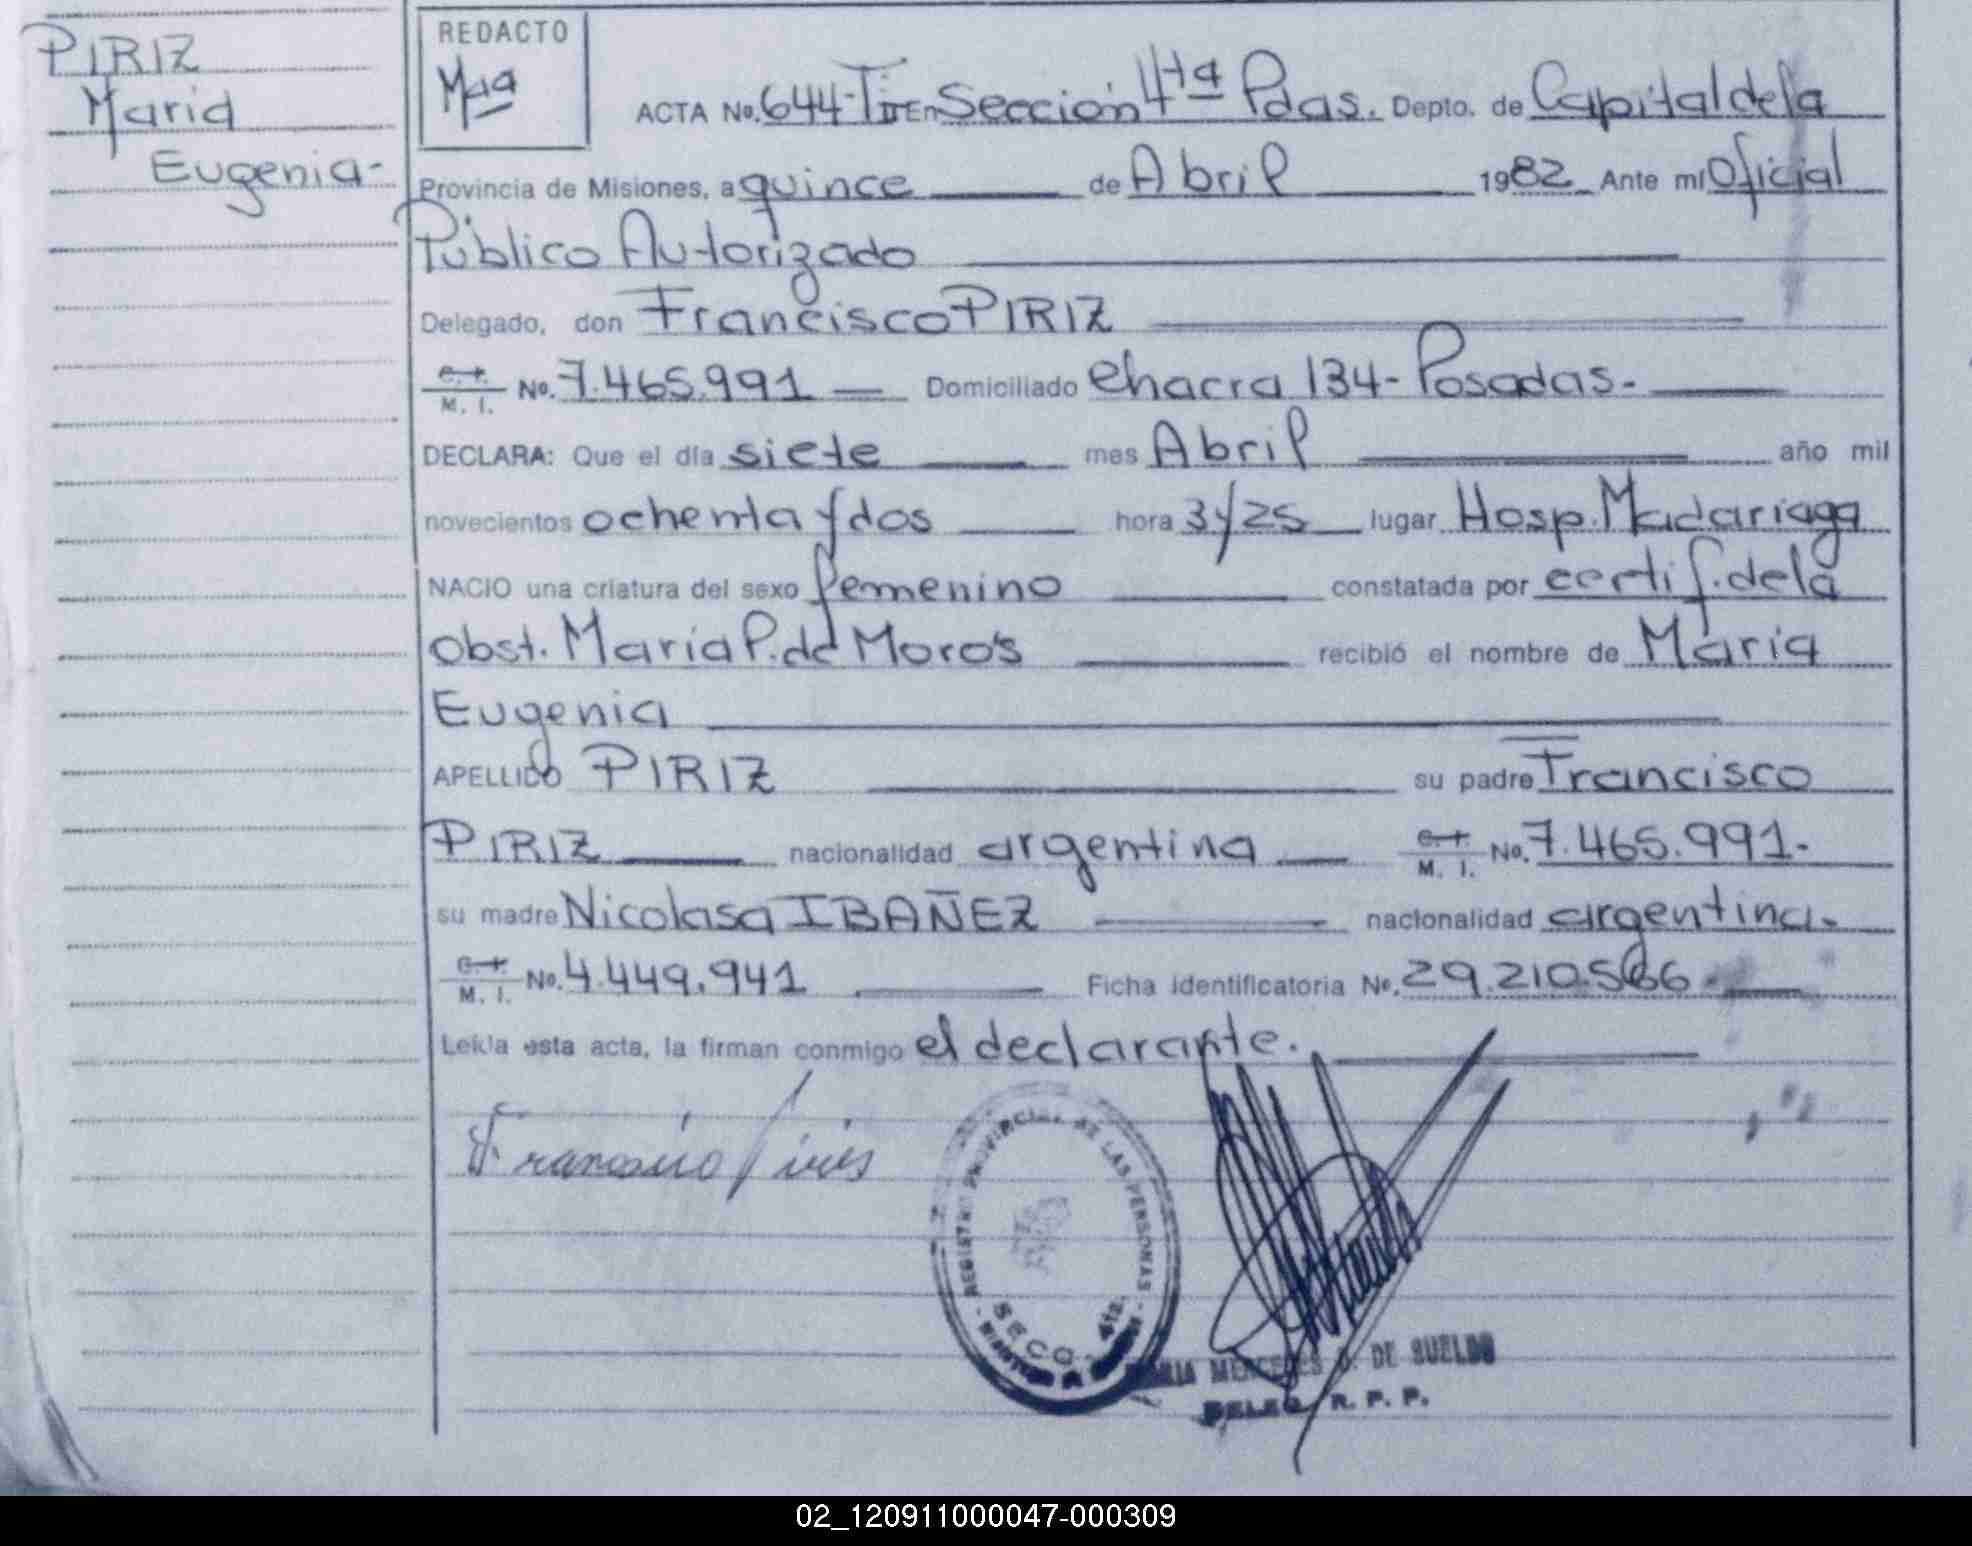 PIRIZ
Maria
Eugenia-
REDACTO
Maa
ACTA No. 644-T II En Sección 4ta Pdas. Depto. de Capital de la
Provincia de Misiones, a quince de Abril 1982 Ante mí Oficial
Público Autorizado
Delegado, don Francisco PIRIZ
C. I. M. I. No. 7.465.991 Domiciliado Chacra 134- Posadas.
DECLARA: Que el día siete mes Abril año mil
novecientos ochenta y dos hora 3 y 25 lugar Hosp. Madariaga
NACIO una criatura del sexo femenino constatada por certif. de la
obst. María P. de Moro's recibió el nombre de María
Eugenia
APELLIDO PIRIZ su padre Francisco
PIRIZ nacionalidad argentina C. I. M. I. No. 7.465.991.
su madre Nicolasa IBAÑEZ nacionalidad argentina.
C. I. M. I. No. 4.449.941 Ficha identificatoria No. 29.210.566
Leída esta acta, la firman conmigo el declarante.
Francisco Piris
REGISTRO PROVINCIAL DE LAS PERSONAS
SECC. 4ta.
MARIA MERCEDES DE SUELDO
DELEG. R. P. P.
02_120911000047-000309